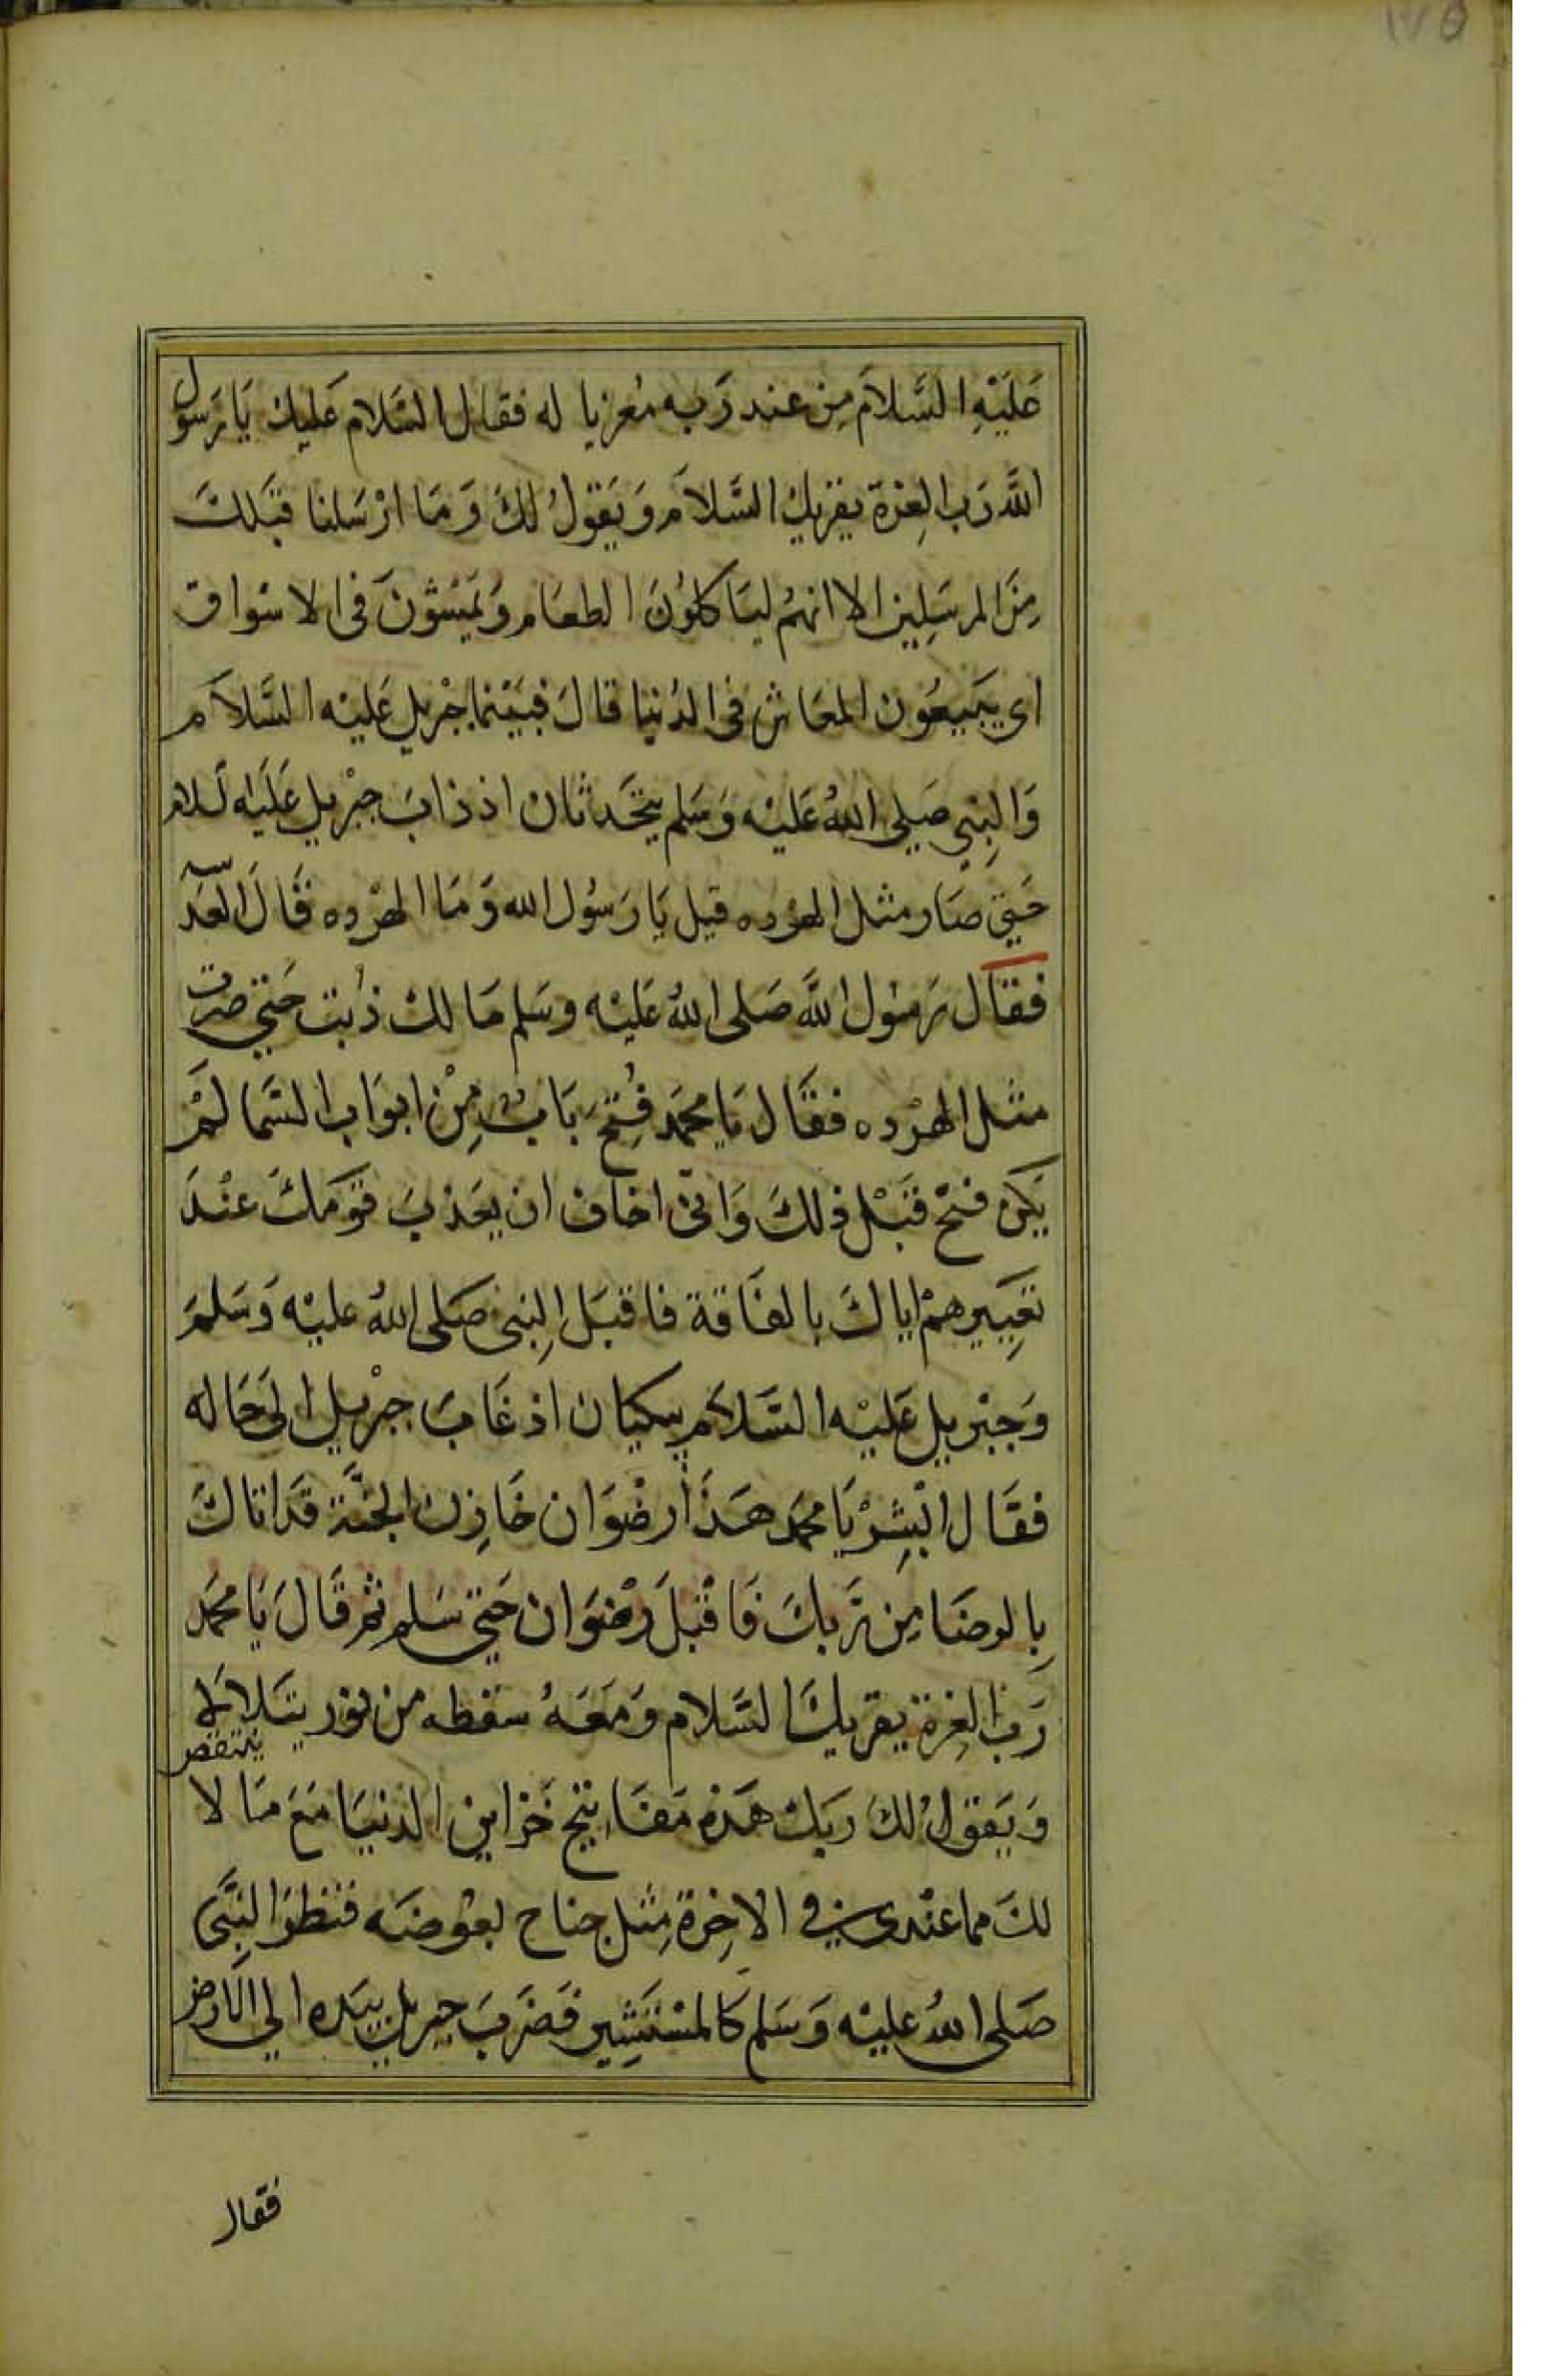 ١٧٥
عَلَيْهِ السَّلَامَ مِن عند رَبه مُعزيا له فقال السَّلام عَليك يَا رَسول
اللَّه رَب العِزة يقريك السَّلَام وَيَقولُ لكَ وَمَا ارْسَلنا قبَلكَ
مِنَ المرسَلِين الا انهُم ليَاكلوُنَ الطعَام وَيَمْشوُنَ فى الاسَواق
اى يبَيعُون المعَاش فى الدُنيا قالَ فبَيْنما جْبريل عَليْه السَّلَام
وَالنِبي صَلى اللهُ عَليْه وَسَلم يتحَدثان اذ ذابَ جبْريل عَلَيْه السلام
حَتي صَار مثل الهرْده قيل يَا رَسوُل الله وَمَا الهرْده قَالَ العَدسه
فقَال رَسوُل اللَّه صَلى اللهُ عَليْه وسَلم مَا لكْ ذُبت حَتي صرت
مثل الهرْده فقَال يَا محمَد فُتِحَ بَابٌ مِنْ ابوَاب السَّما لَمْ
يَكن فتحْ قَبْل ذلكَ وَانىّ اخاف ان يعَذبَ قوَمكَ عنْدَ
تعِييرهمْ اياكَ بالفَاقة فاقبَل النِبى صَلى اللهُ عليْه وَسَلمَ
وَجبْريل عَليْه السَّلَام يبكيان اذ عَابَ جبْريل الىَ حَاله
فقَال ابْشِرْ يَا محمَد هَذَا رضْوَان خَازِن الجنَّة قدَ اتاكَ
بِالرضَا مِن رَبكَ فَاقْبلَ رضْوَان حَتي سَلم ثم قَالَ يَا محُمَد
رَبُ العِزة يقريكَ السَّلام وَمَعَهُ سَفطه من نور يتَلالا
ينتقص
وَيَقولُ لكَ رَبكْ هَذه مَفَاتيح خَزاين الدنيَا مَعَ مَا لا
لكَ مما عنْدى في الاخِرة مِثل جناح بعوْضَه فنَظرَ النِبَّى
صَلى اللهُ عليْه وَسَلم كَالمسْتَشِير فَضَربَ جبريل بيَده الي الارض
فقال